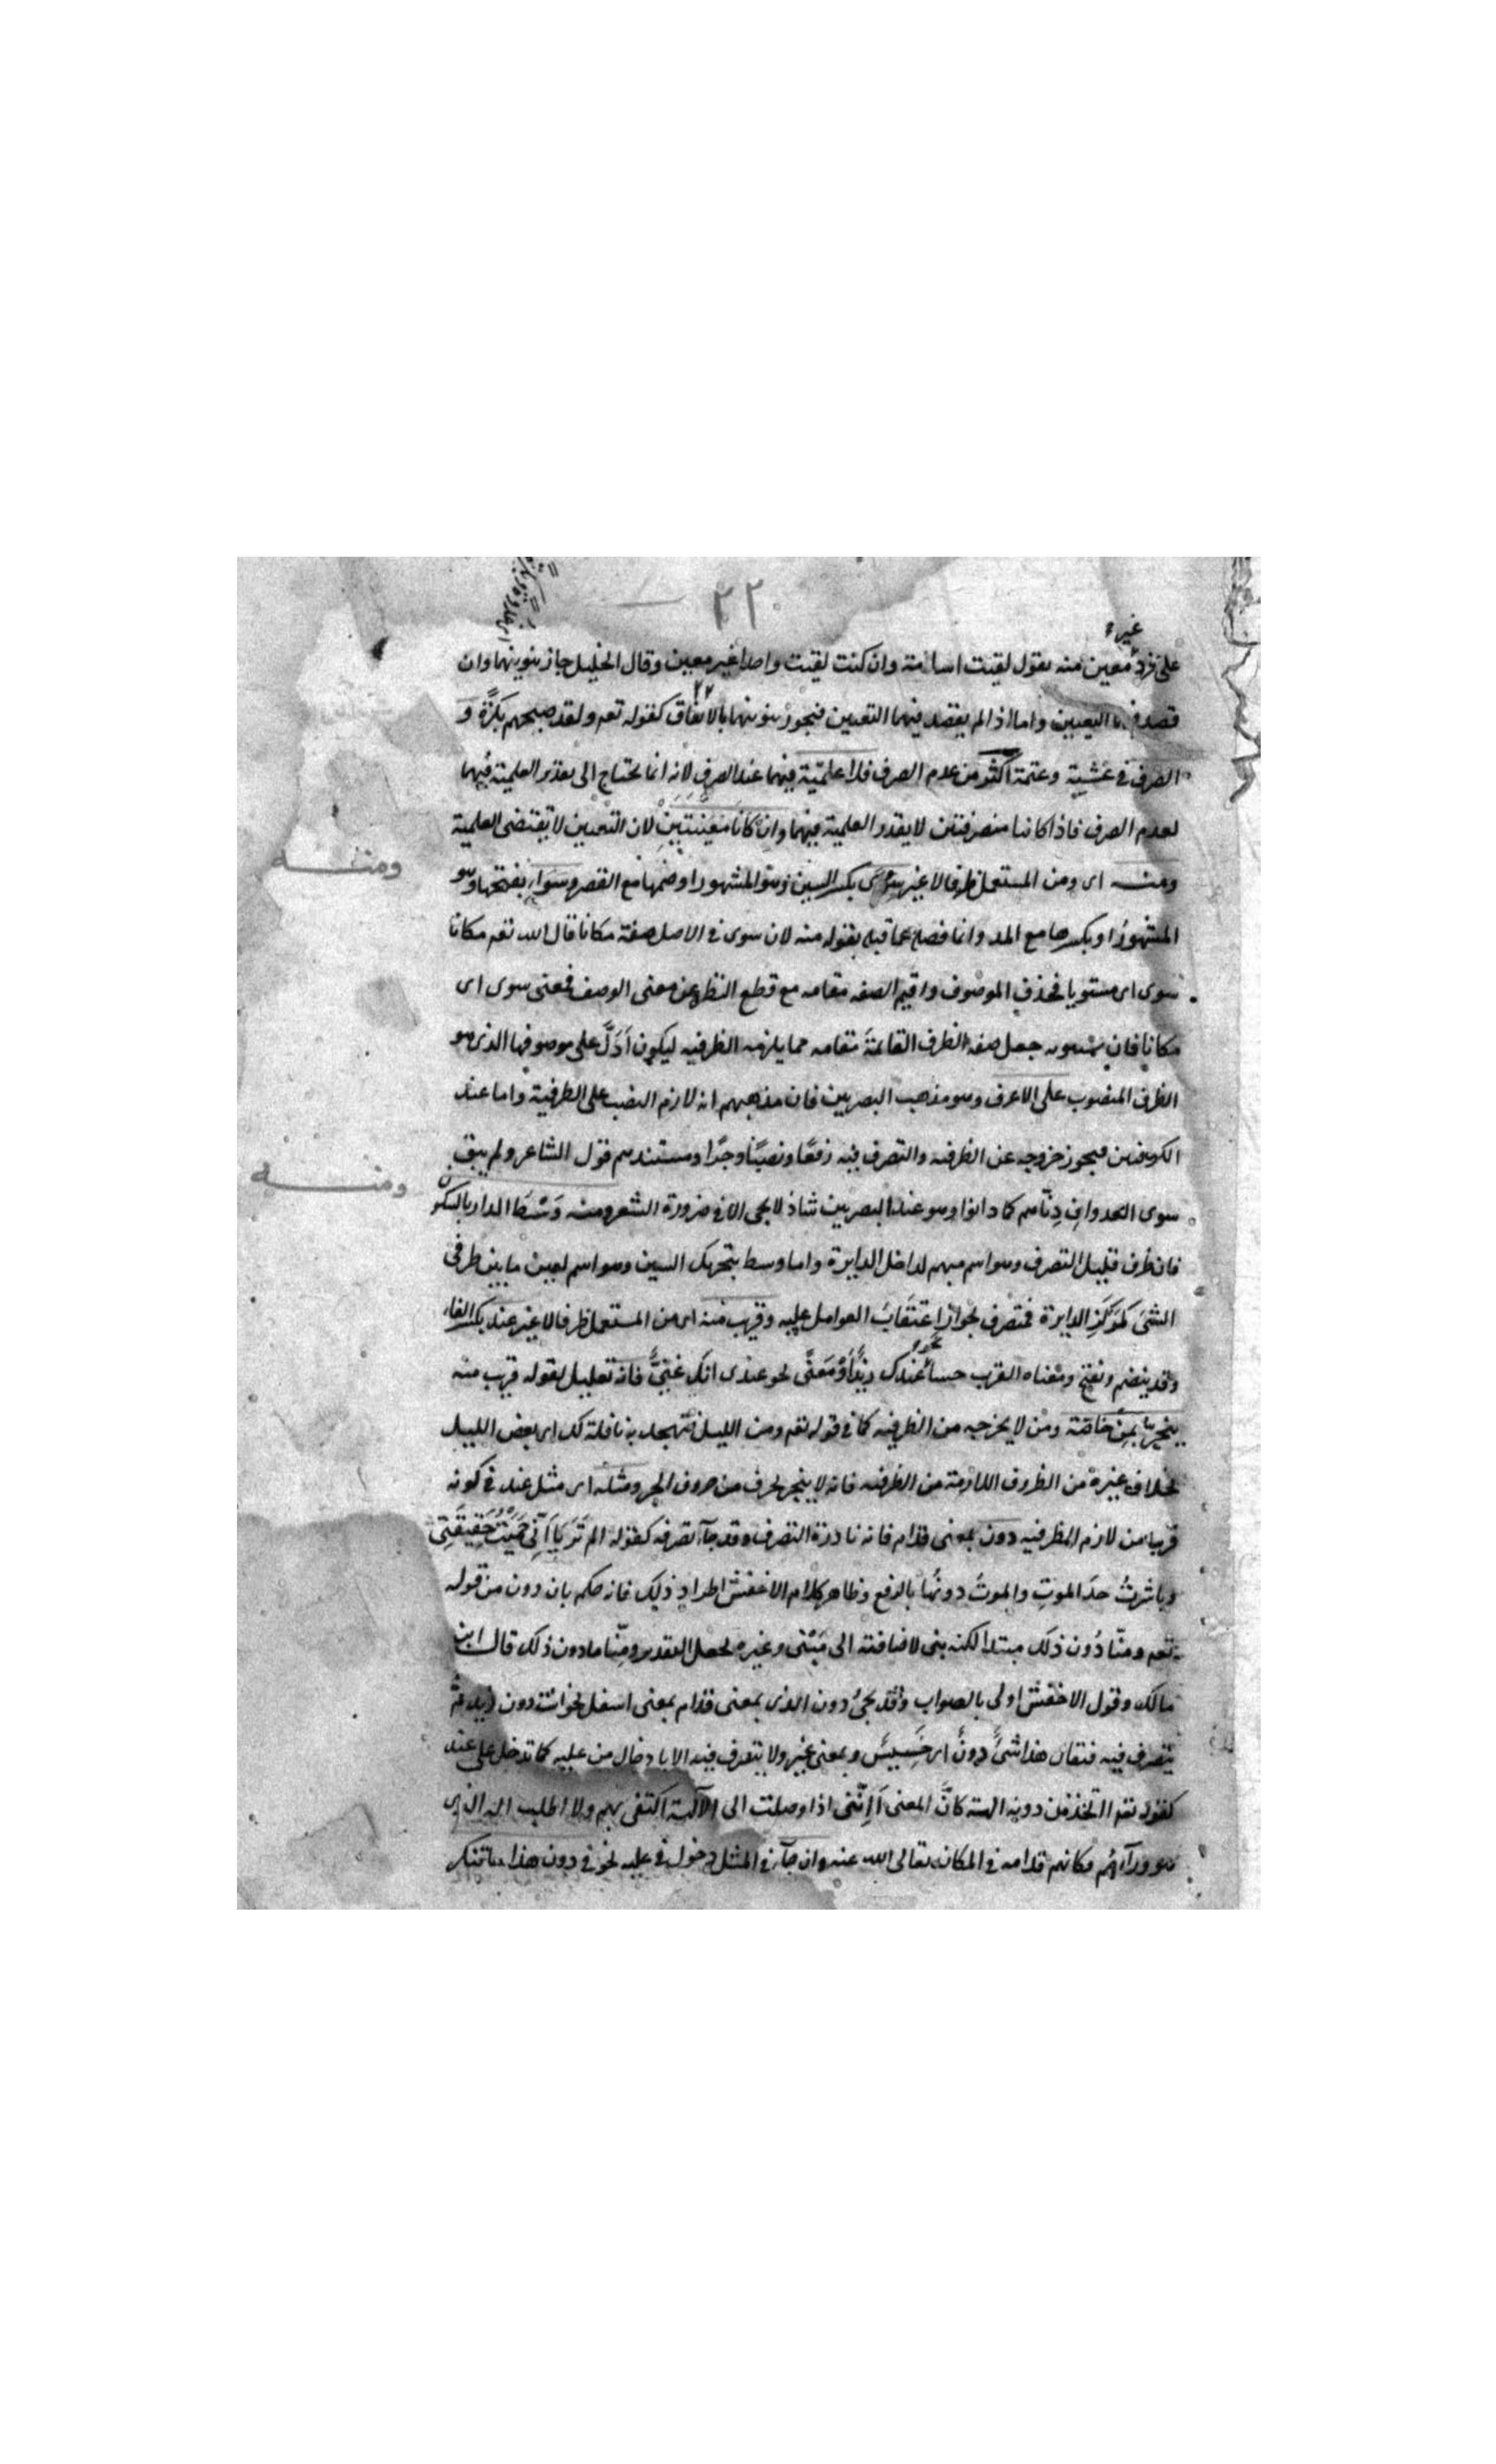 ٢٢
غير
على فرد معين منه يقول لقيت اسامة وان كنت لقيت واحدا غير معين وقال الخليل جاز تنوينهما وان
قصد التعيين واما اذا لم يقصد فيهما التعيين فيجوز تنوينهما بالاتفاق كقوله تعه ولقد صبحهم بكرةً و
الصرف في عشية وعتمة اكثر من عدم الصرف فلا علميّة فيهما عند الصرف لانه انما يحتاج الى تقدير العلمية فيهما
لعدم الصرف فاذا كانتا منصرفتين لا يقدر العلمية فيهما وان كانا معيّنتين لان التعيين لا تقتضى العلمية
ومنه اى ومن المستعمل ظرفا لا غير سوى بكسر السين وهو المشهور او ضمها مع القصر وسواء بفتحها وهو
المشهور او بكسرها مع المد وانما فصله عما قبله بقوله منه لان سوى في الاصل صفة مكانا قال الله تعه مكانا
سوى اى مستويا فحذف الموصوف واقيم الصفه مقامه مع قطع النظر عن معنى الوصف فمعنى سوى اى
مكانا فان جعل صفه الظرف القائمة مقامه مما يلزمه الظرفيه ليكون ادلّ على موصوفها الذى هو
الظرف المنصوب على الاعرف وهو مذهب البصريين فان مذهبهم انه لازم النصب على الظرفية واما عند
الكوفيين فيجوز خروجه عن الظرفيه والتصرف فيه رفعًا ونصبًا وجرًا ومستندهم قول الشاعر ولم يبق
سوى العدوان دِنّاهم كما دانوا وهو عند البصريين شاذ لا يجى الا في ضرورة الشعر ومنه وَسْط الدار بالسكون
فانه ظرف قليل التصرف وهو اسم مبهم لداخل الدايرة واما وسط بتحريك السين وهو اسم لعين ما بين طرفى
الشئ كمركز الدايرة فمتصرف لجواز اعتقاب العوامل عليه وقريب منه اى من المستعمل ظرفا لا غير عند بكسر الفاء
وقد يضم ويفتح ومعناه القرب حسا نحو عندك زيد او معنًى نحو عندى انك غنىّ فانه تعليل لقوله قريب منه
ينجر بمِن خاصّة ومن لا يخرجه من الظرفيه كما في قوله تعه ومن الليل فتهجد به نافلة لك اى بعض الليل
بخلاف غيره من الظروف اللازمة من الظرفيه فانه لا ينجر بحرف من حروف الجر ومثله اى مثل عند في كونه
قريبا من لازم الظرفيه دون بمعنى قدام فانه نادرة التصرف وقد جاء تصرفه كقوله الم تَرَيا انّى حَمَيْتُ حَقِيقَتِى
وباشرتُ حدَّ الموتِ والموتُ دونُها بالرفع وظاهر كلام الاخفش اطراد ذلك فانه حكم بان دون من قوله
تعه ومنّا دُون ذلك مبتدا لكنه بنى لاضافته الى مبنى وغيره لجعل التقدير ومِنّا ما دون ذلك قال ابن
مالك وقول الاخفش اولى بالصواب وقد يجئ دون الذى بمعنى قدام بمعنى اسفل نحو انت دون زيد ثم
يتصرف فيه فيقال هذا شئٌ دونٌ اى خسيسٌ وبمعنى غير ولا يتصرف فيه الا بادخال من عليه كما تدخل على عند
كقوله تعه أاتخذ من دونه الهة كانّ المعنى أاننى اذا وصلت الى الآلهة اكتفى بهم ولا اطلب الله الذى
هو ورآءهم مكانهم قدامه في المكان تعالى الله عنه وان جآء في المثل دخول في عليه نحو في دون هذا ما تنكر
ومنه
ومنه